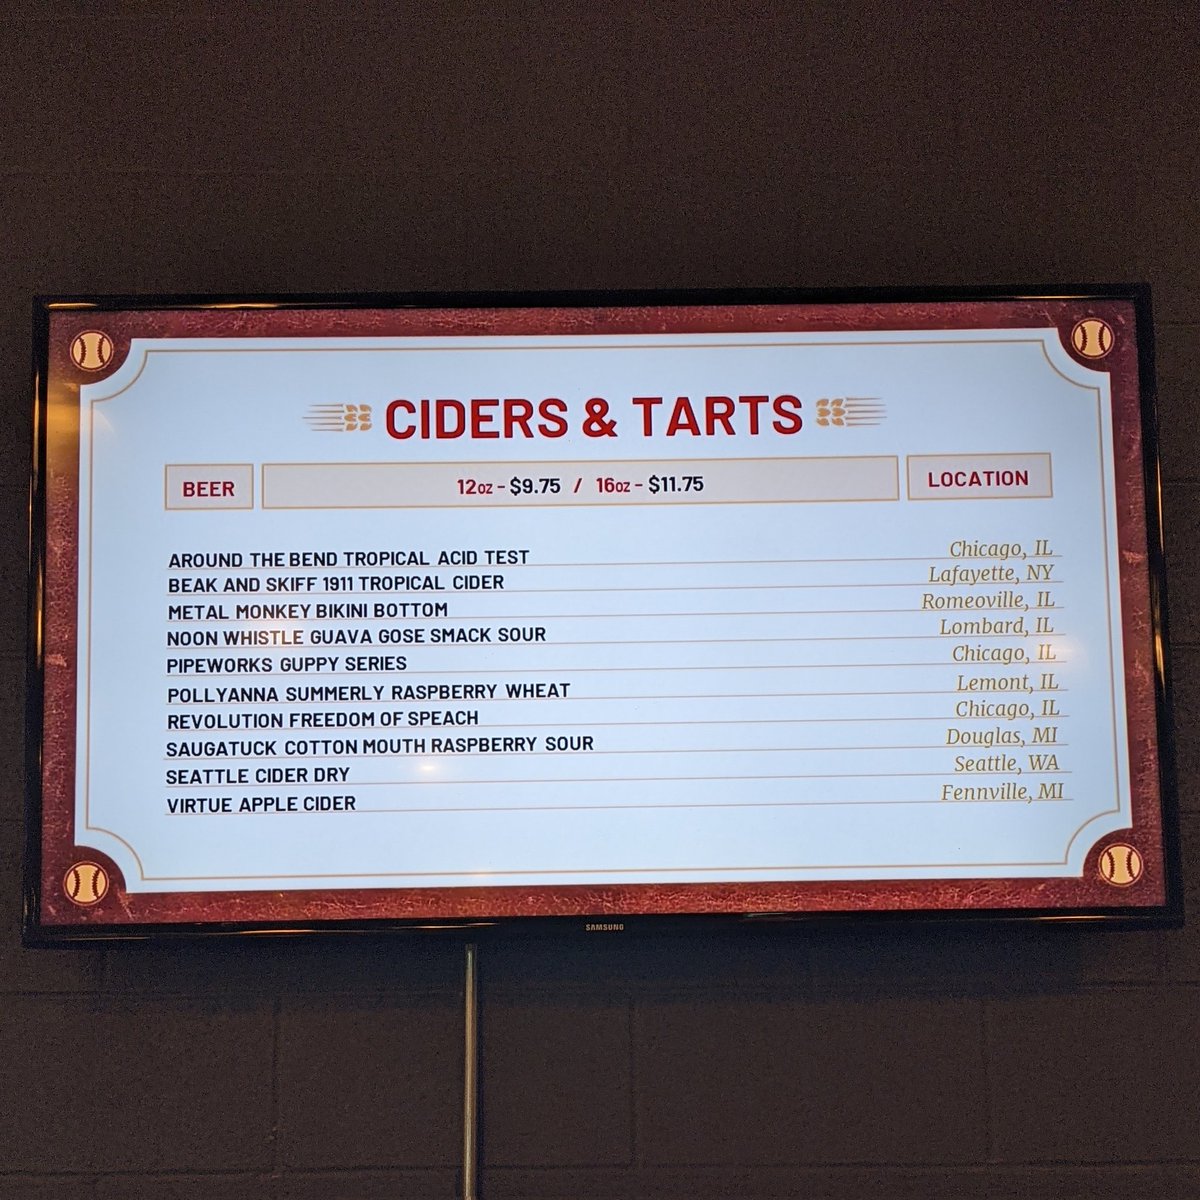 CIDERS & TARTS
BEER 12oz - $9.75 / 16oz - $11.75 LOCATION
AROUND THE BEND TROPICAL ACID TEST Chicago, IL
BEAK AND SKIFF 1911 TROPICAL CIDER Lafayette, NY
METAL MONKEY BIKINI BOTTOM Romeoville, IL
NOON WHISTLE GUAVA GOSE SMACK SOUR Lombard, IL
PIPEWORKS GUPPY SERIES Chicago, IL
POLLYANNA SUMMERLY RASPBERRY WHEAT Lemont, IL
REVOLUTION FREEDOM OF SPEACH Chicago, IL
SAUGATUCK COTTON MOUTH RASPBERRY SOUR Douglas, MI
SEATTLE CIDER DRY Seattle, WA
VIRTUE APPLE CIDER Fennville, MI
SAMSUNG